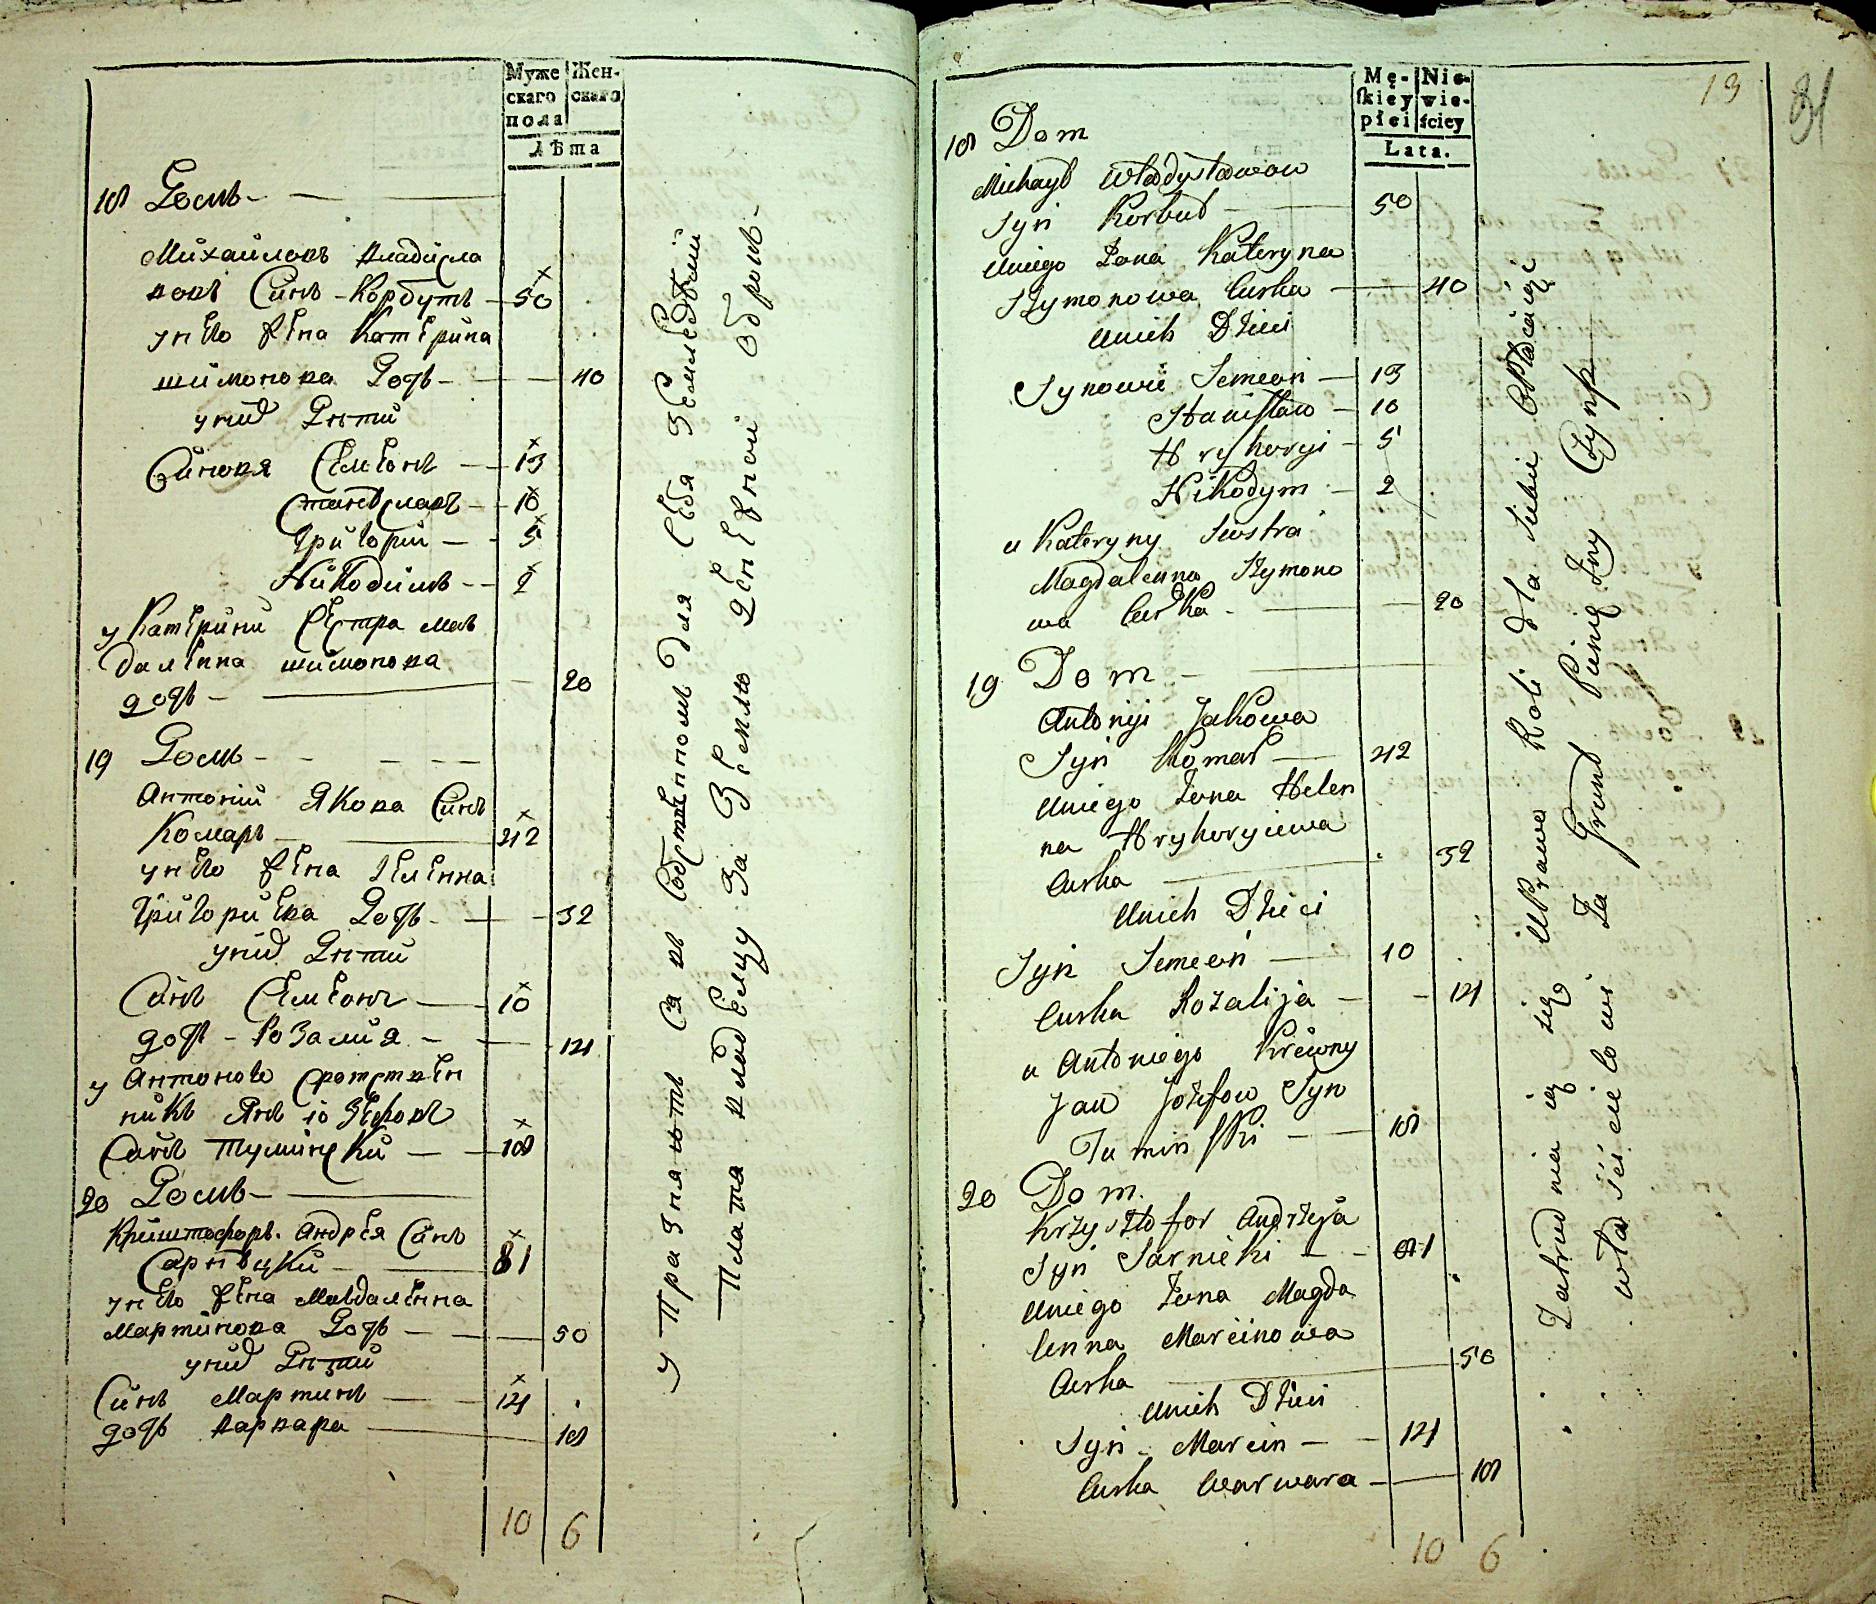 Муже Жен-
скаго скаго
пола
Лѣта
18 Домъ
Михаилъ Владисла
вовъ Синъ Корбутъ 50
у него Жена Катерина
шимонова Дочь 40
у нихъ Дѣти
Синовя Семіонъ 13
Станиславъ 10
Григорій 5
Никодимъ 2
у Катерини Сестра Маг
далінна шимонова
дочь 20
19 Домъ
Антоній Якова Синъ
Комаръ 42
у него Жена Геленна
Григоріева Дочь 32
у нихъ Дѣти
Синъ Семіонъ 10
дочь Розалия 14
у Антоного Сротствен
никъ Янъ іозефовъ
Синъ Тумінски 18
20 Домъ
Криштофоръ Андрея Синъ
Сарнѣцки 81
у него Жена Магдаленна
Мартинова Дочь 50
у нихъ Дѣти
Синъ Мартинъ 14
дочь Варвара 18
10 6
Упражняютъ Ся въ Собственномъ для Себя Земледѣліи
Плата владелцу За Землю Денежной Оброкъ
Mę- Nie-
skiey wie-
płei ściey
Lata.
13
31
18 Dom
Michaył Władysławow
Syn Korbut 50
Uniego Zona Kateryna
Szymonowa Curka 40
Unich Dzieci
Synowie Semeon 13
Stanisław 10
Hryhoryi 5
Nikodym 2
u Kateryny Siostra
Magdalenna Szymono
wa Curka 20
19 Dom
Antonyi Jakowa
Syn Komar 42
Uniego Zona Helen
na Hryhoryiewa
Curka 32
Unich Dzieci
Syn Semeon 10
Curka Rozalija 14
u Antoniego Krewny
Jan Jozefow Syn
Tuminski 18
20 Dom.
Krzysztofor Andrzeja
Syn Sarnicki 81
Uniego Zona Magda
lenna Marcinowa
Curka 50
Unich Dzieci
Syn Marcin 14
Curka Warwara 18
10 6
Zatrudniaią się Uprawą Roli Dla Siebie Opłacaiąc
Właścicielowi Za Grunt Pieniężny Czynsz